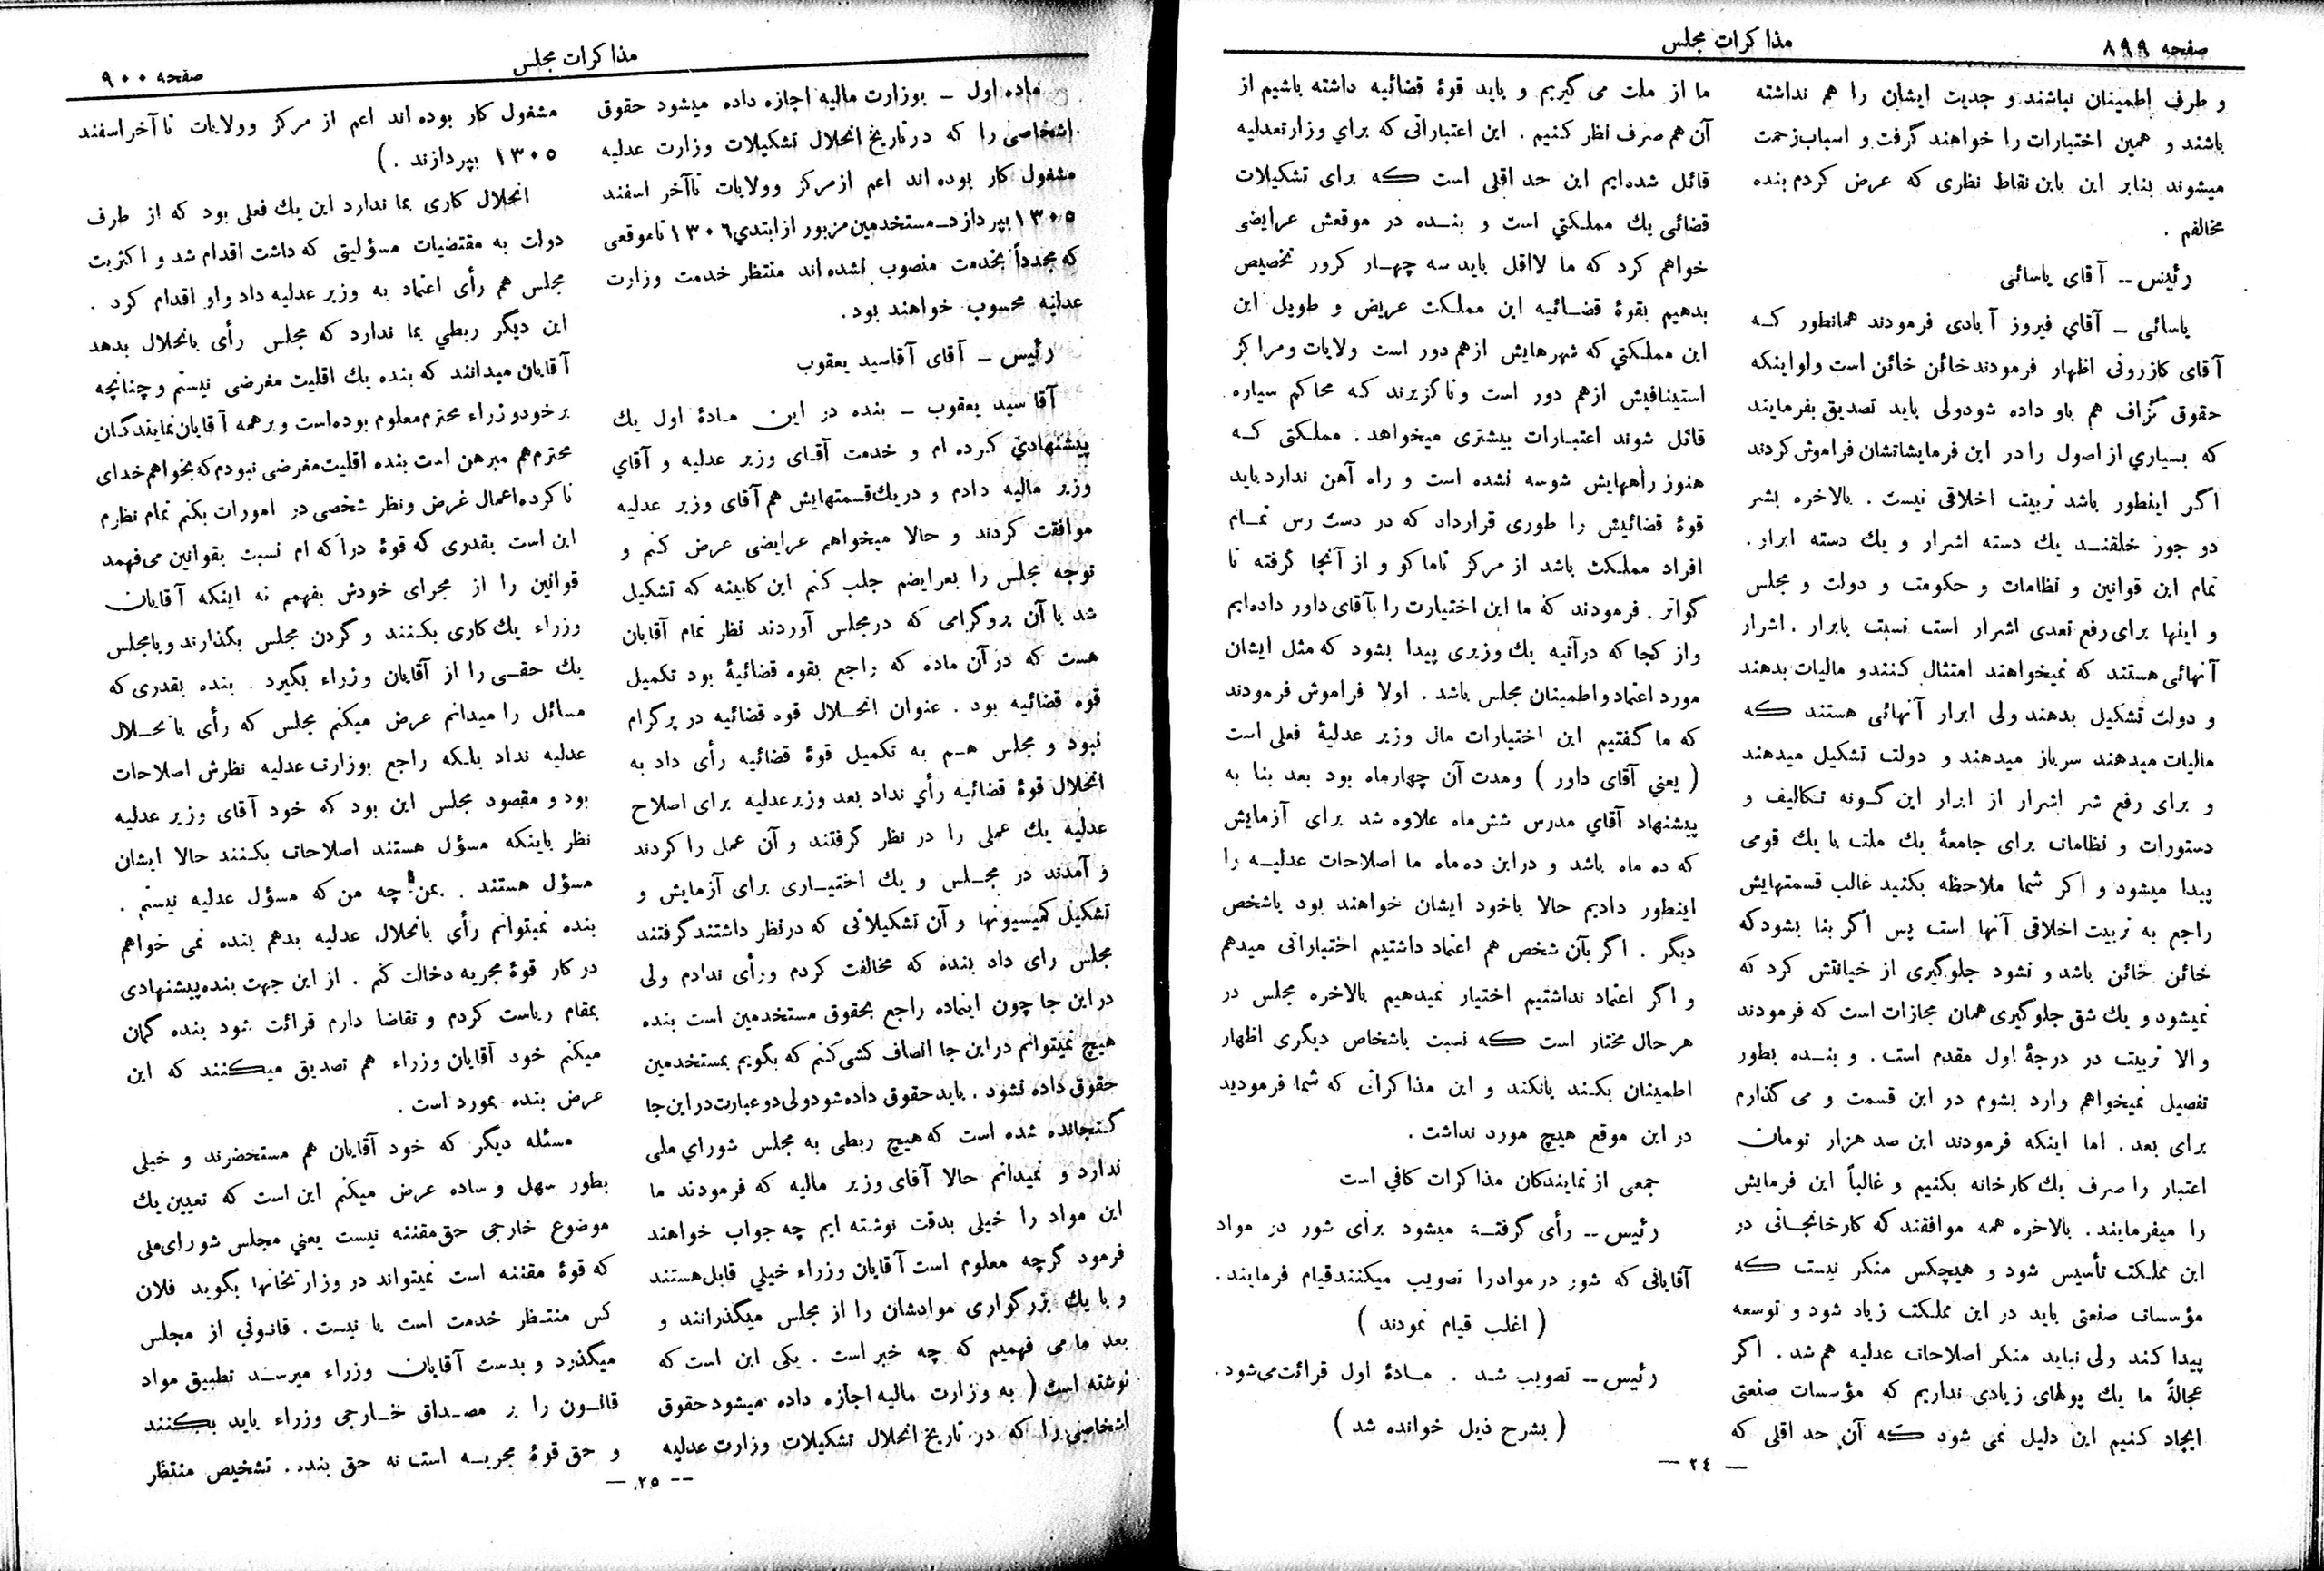 صفحه ۸۹۹
مذاکرات مجلس
و طرف اطمینان نباشند و جدیت ایشان را هم نداشته
باشند و همین اختیارات را خواهند گرفت و اسباب زحمت
میشوند بنابر این باین نقاط نظری که عرض کردم بنده
مخالفم .
رئیس -- آقای یاسائی
یاسائی - آقاي فیروز آبادی فرمودند همانطور که
آقای کازرونی اظهار فرمودند خائن خائن است ولو اینکه
حقوق گزاف هم باو داده شود ولی باید تصدیق بفرمایند
که بسیاري از اصول را در این فرمایشاتشان فراموش کردند
اگر اینطور باشد تربیت اخلاقی نیست . بالاخره بشر
دو جور خلقند یك دسته اشرار و یك دسته ابرار .
تمام این قوانین و نظامات و حکومت و دولت و مجلس
و اینها برای رفع تعدی اشرار است نسبت بابرار . اشرار
آنهائی هستند که نمیخواهند امتثال کنند و مالیات بدهند
و دولت تشکیل بدهند ولی ابرار آنهائی هستند که
مالیات میدهند سرباز میدهند و دولت تشکیل میدهند
و برای رفع شر اشرار از ابرار این گونه تکالیف و
دستورات و نظامات برای جامعهٔ یك ملت یا یك قومی
پیدا میشود و اگر شما ملاحظه بکنید غالب قسمتهایش
راجع به تربیت اخلاقی آنها است پس اگر بنا بشود که
خائن خائن باشد و نشود جلوگیری از خیانتش کرد که
نمیشود و یك شق جلوگیری همان مجازات است که فرمودند
والا تربیت در درجهٔ اول مقدم است . و بنده بطور
تفصیل نمیخواهم وارد بشوم در این قسمت و می گذارم
برای بعد . اما اینکه فرمودند این صد هزار تومان
اعتبار را صرف یك کارخانه بکنیم و غالباً این فرمایش
را میفرمایند . بالاخره همه موافقند که کارخانجاتی در
این مملکت تأسیس شود و هیچکس منکر نیست که
مؤسسات صنعتی باید در این مملکت زیاد شود و توسعه
پیدا کند ولی نباید منکر اصلاحات عدلیه هم شد . اگر
عجالةً ما یك پولهای زیادی نداریم که مؤسسات صنعتی
ایجاد کنیم این دلیل نمی شود که آن حد اقلی که
ما از ملت می گیریم و باید قوهٔ قضائیه داشته باشیم از
آن هم صرف نظر کنیم . این اعتباراتی که براي وزارتعدلیه
قائل شده‌ایم این حد اقلی است که برای تشکیلات
قضائی یك مملکتی است و بنده در موقعش عرایضی
خواهم کرد که ما لااقل باید سه چهار کرور تخصیص
بدهیم بقوهٔ قضائیه این مملکت عریض و طویل این
این مملکتي که شهرهایش ازهم دور است ولایات و مراکز
استینافیش ازهم دور است و ناگزیرند که محاکم سیاره
قائل شوند اعتبارات بیشتری میخواهد . مملکتی که
هنوز راههایش شوسه نشده است و راه آهن ندارد باید
قوهٔ قضائیش را طوری قرارداد که در دست رس تمام
افراد مملکت باشد از مرکز تا ماکو و از آنجا گرفته تا
گواتر . فرمودند که ما این اختیارت را بآقای داور داده‌ایم
واز کجا که درآتیه یك وزیری پیدا بشود که مثل ایشان
مورد اعتماد و اطمینان مجلس باشد . اولا فراموش فرمودند
که ما گفتیم این اختیارات مال وزیر عدلیهٔ فعلی است
( یعني آقای داور ) ومدت آن چهارماه بود بعد بنا به
پیشنهاد آقاي مدرس شش‌ماه علاوه شد برای آزمایش
که ده ماه باشد و دراین ده ماه ما اصلاحات عدلیه را
اینطور دادیم حالا باخود ایشان خواهند بود یاشخص
دیگر . اگر بآن شخص هم اعتماد داشتیم اختیاراتی میدهم
و اگر اعتماد نداشتیم اختیار نمیدهیم بالاخره مجلس در
هر حال مختار است که نسبت باشخاص دیگری اظهار
اطمینان بکند یانکند و این مذاکراتی که شما فرمودید
در این موقع هیچ مورد نداشت .
جمعی از نمایندکان مذاکرات کافي است
رئیس -- رأی گرفته میشود برای شور در مواد
آقایانی که شور در مواد را تصویب میکنند قیام فرمایند .
( اغلب قیام نمودند )
رئیس -- تصویب شد . مادهٔ اول قرائت می شود .
( بشرح ذیل خوانده شد )
— ٢٤ —
مذاکرات مجلس
صفحه ۹۰۰
ماده اول - بوزارت مالیه اجازه داده میشود حقوق
اشخاصی را که در تاریخ انحلال تشکیلات وزارت عدلیه
مشغول کار بوده اند اعم ازمرکز وولایات تاآخر اسفند
١٣٠٥ بپردازد - مستخدمین مزبور از ابتدي ١٣٠٦ تا موقعی
که مجدداً بخدمت منصوب نشده اند منتظر خدمت وزارت
عدلیه محسوب خواهند بود.
رئیس - آقای آقاسید یعقوب
آقا سید یعقوب - بنده در این مادهٔ اول یك
پیشنهادي کرده ام و خدمت آقای وزیر عدلیه و آقاي
وزیر مالیه دادم و دریك قسمتهایش هم آقای وزیر عدلیه
موافقت کردند و حالا میخواهم عرایضی عرض کنم و
توجه مجلس را بعرایضم جلب کنم این کابینه که تشکیل
شد با آن پروگرامی که درمجلس آوردند نظر تمام آقایان
هست که در آن ماده که راجع بقوه قضائیهٔ بود تکمیل
قوه قضائیه بود . عنوان انحلال قوه قضائیه در پرگرام
نبود و مجلس هم به تکمیل قوهٔ قضائیه رأی داد به
انحلال قوهٔ قضائیه رأي نداد بعد وزیر عدلیه برای اصلاح
عدلیه یك عملی را در نظر گرفتند و آن عمل را کردند
و آمدند در مجلس و یك اختیاری برای آزمایش و
تشکیل کمیسیونها و آن تشکیلاتی که درنظر داشتند گرفتند
مجلس رای داد بنده که مخالفت کردم ورأی ندادم ولی
در این جا چون اینماده راجع بحقوق مستخدمین است بنده
هیچ نمیتوانم در این جا انصاف کشی کنم که بگویم بمستخدمین
حقوق داده نشود . باید حقوق داده شود ولی دو عبارت در این جا
گنجانده شده است که هیچ ربطی به مجلس شوراي ملی
ندارد و نمیدانم حالا آقای وزیر مالیه که فرمودند ما
این مواد را خیلی بدقت نوشته ایم چه جواب خواهند
فرمود گرچه معلوم است آقایان وزراء خیلي قابل هستند
و با یك بزرگواری موادشان را از مجلس میگذرانند و
بعد ما می فهمیم که چه خبر است . یکی این است که
نوشته است ( به وزارت مالیه اجازه داده میشود حقوق
اشخاصی را که در تاریخ انحلال تشکیلات وزارت عدلیه
مشغول کار بوده اند اعم از مرکز وولایات تا آخر اسفند
١٣٠٥ بپردازند . )
انحلال کاری بما ندارد این یك فعلی بود که از طرف
دولت به مقتضیات مسؤلیتی که داشت اقدام شد و اکثریت
مجلس هم رأی اعتماد به وزیر عدلیه داد واو اقدام کرد .
این دیگر ربطي بما ندارد که مجلس رأی بانحلال بدهد
آقایان میدانند که بنده یك اقلیت مغرضی نیستم و چنانچه
بر خود وزراء محترم معلوم بوده است و برهمه آقایان نمایندکان
محترم هم مبرهن است بنده اقلیت مغرضی نبودم که بخواهم خدای
نا کرده اعمال غرض ونظر شخصی در امورات بکنم تمام نظرم
این است بقدری که قوهٔ دراکه ام نسبت بقوانین می فهمد
قوانین را از مجرای خودش بفهمم نه اینکه آقایان
وزراء یك کاری بکنند و گردن مجلس بگذارند و یا مجلس
یك حقی را از آقایان وزراء بگیرد . بنده بقدری که
مسائل را میدانم عرض میکنم مجلس که رأی بانحلال
عدلیه نداد بلکه راجع بوزارت عدلیه نظرش اصلاحات
بود و مقصود مجلس این بود که خود آقای وزیر عدلیه
نظر باینکه مسؤل هستند اصلاحات بکنند حالا ایشان
مسؤل هستند . بمن چه من که مسؤل عدلیه نیستم .
بنده نمیتوانم رأي بانحلال عدلیه بدهم بنده نمی خواهم
در کار قوهٔ مجریه دخالت کنم . از این جهت بنده پیشنهادی
بمقام ریاست کردم و تقاضا دارم قرائت شود بنده گمان
میکنم خود آقایان وزراء هم تصدیق میکنند که این
عرض بنده بمورد است .
مسئله دیگر که خود آقایان هم مستحضرند و خیلی
بطور سهل و ساده عرض میکنم این است که تعیین یك
موضوع خارجی حق مقننه نیست یعني مجلس شورای ملی
که قوهٔ مقننه است نمیتواند در وزارتخانها بگوید فلان
کس منتظر خدمت است یا نیست . قانوني از مجلس
میگذرد و بدست آقایان وزراء میرسند تطبیق مواد
قانون را بر مصداق خارجی وزراء باید بکنند
و حق قوهٔ مجریه است نه حق بنده . تشخیص منتظر
— ٢٥ —